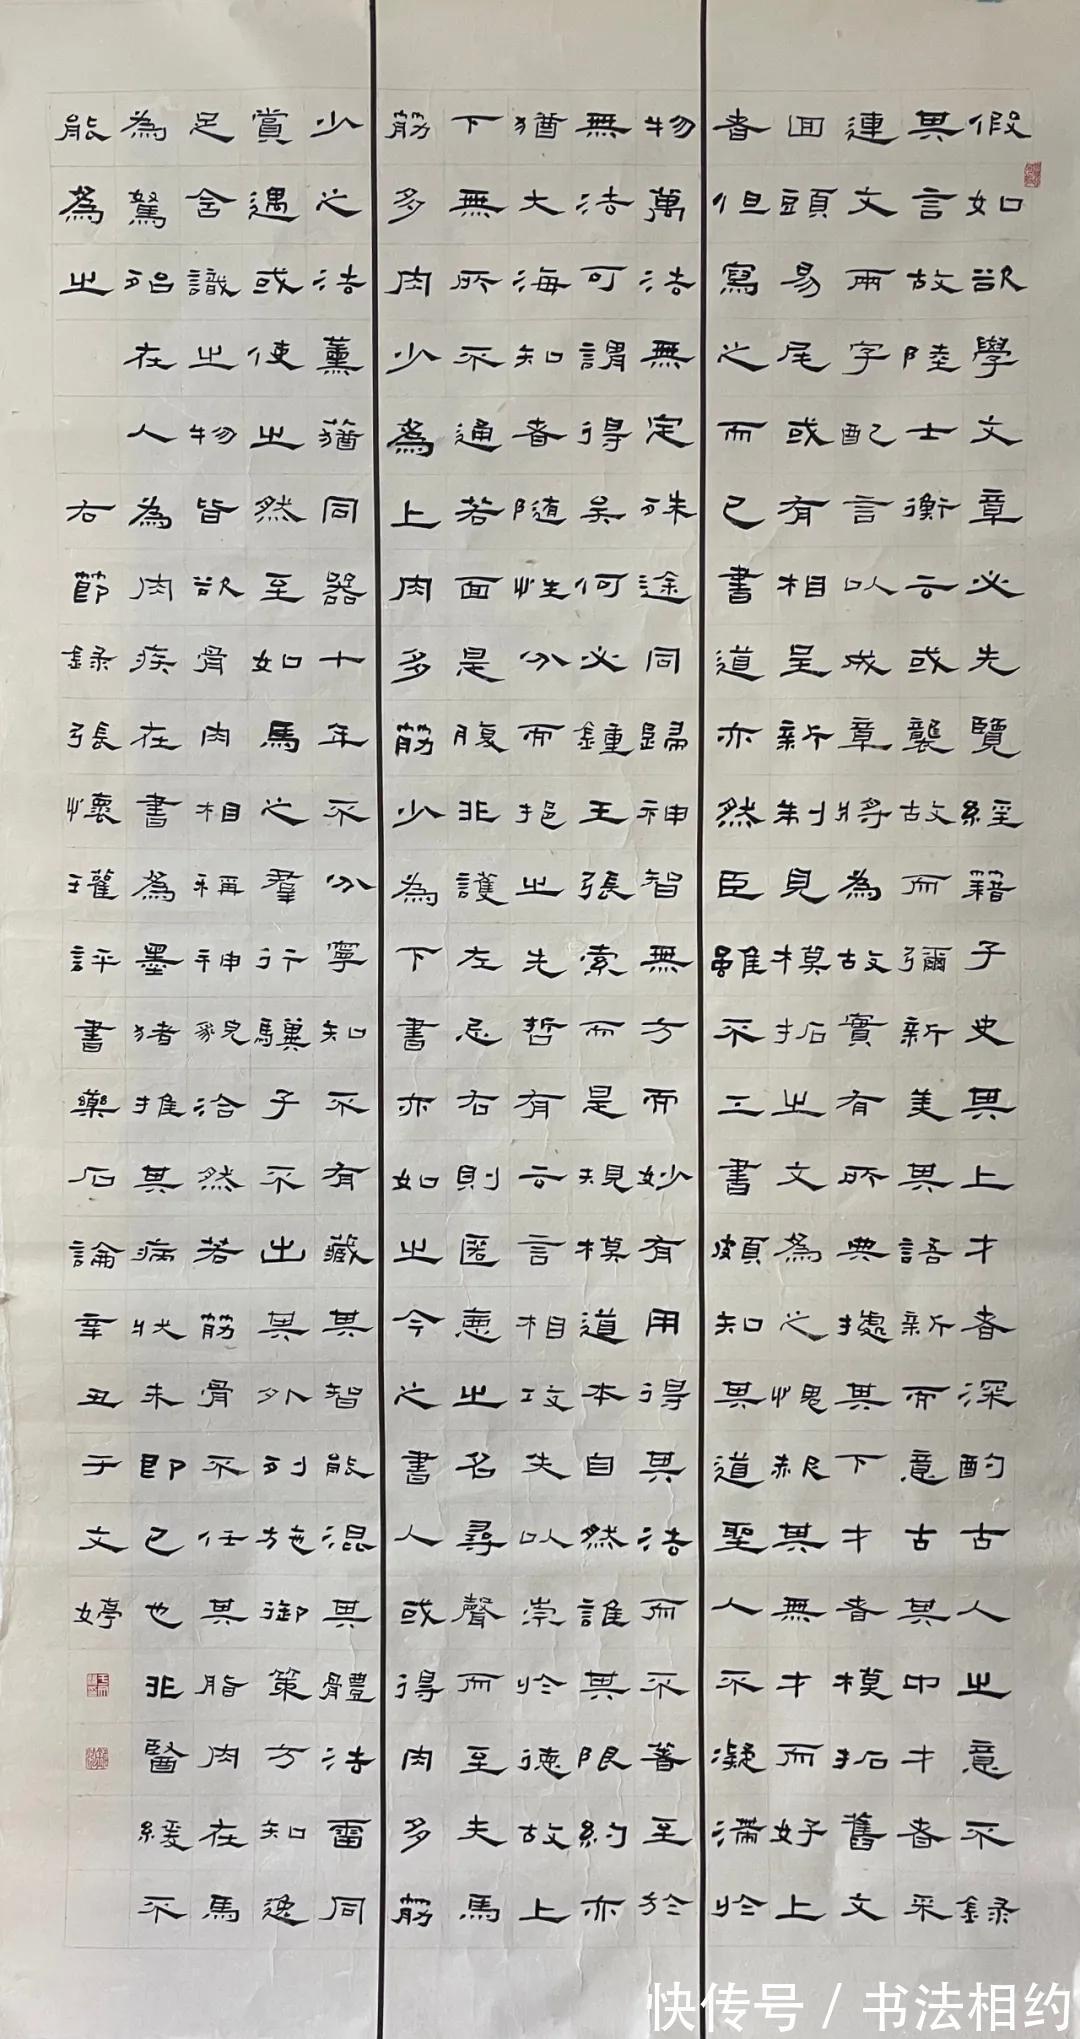 假如欲學文章必先覽經籍子史其上才者深酌古人之意不錄
其言故陸士衡云或襲故而彌新美其語新而意古其中才者采
連文兩字配言以成章將為故實有所典據其下才者模拓舊文
回頭易尾或有相呈新制見模拓之文為之愧赧其無才而好上
者但寫之而已書道亦然臣雖不工書頗知其道聖人不凝滯於
物萬法無定殊途同歸神智無方而妙有用得其法而不著至於
無法可謂得矣何必鍾王張索而是規模道本自然誰其限約亦
猶大海知者隨性分而挹之先哲有云言相攻失以崇於德故上
下無所不通若面是腹非護左忌右則匿惡之名尋聲而至夫馬
筋多肉少為上肉多筋少為下書亦如之今之書人或得肉多筋
少之法薰蕕同器十年不分寧知不有藏其智能混其體法雷同
賞遇或使之然至如馬之羣行驥子不出其外列施御策方知逸
足含識之物皆欲骨肉相稱神貌洽然若筋骨不任其脂肉在馬
為駑駘在人為肉疾在書為墨猪推其病狀未即已也非醫緩不
能為之 右節錄張懷瓘評書藥石論辛丑于文婷
快传号 / 书法相约